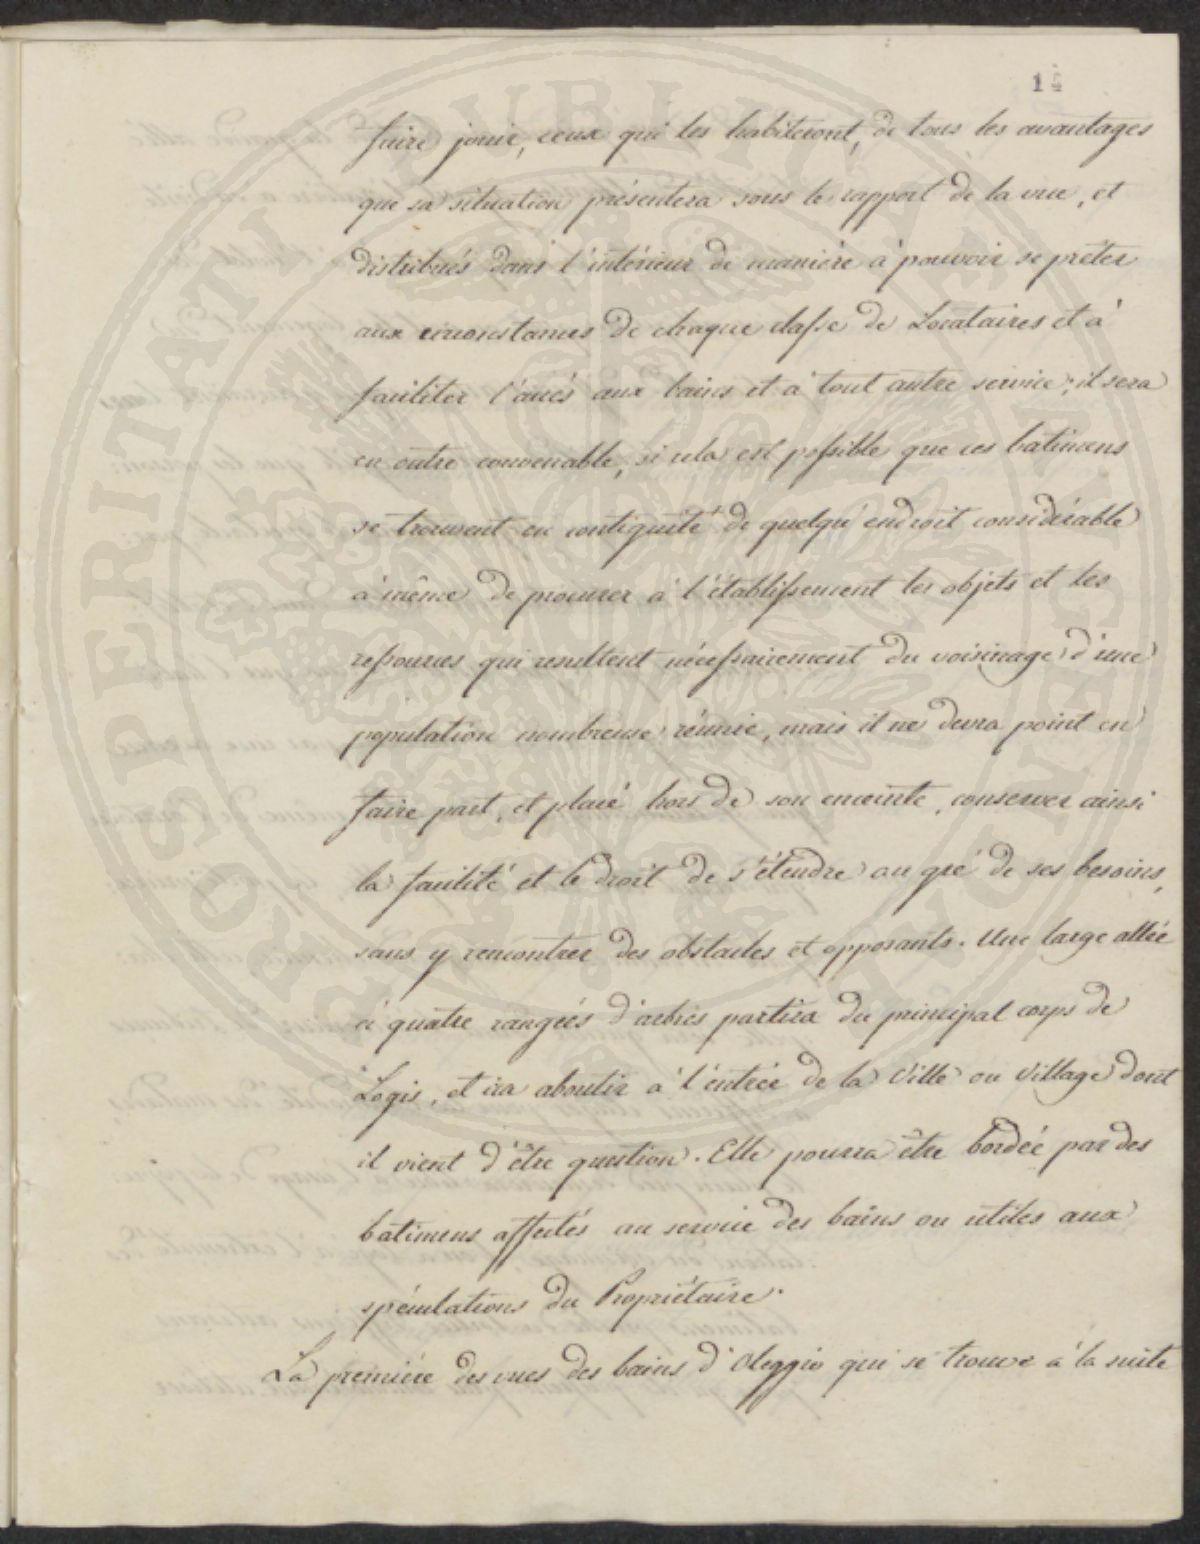 14
faire jouir, ceux qui les habiteront, de tous les avantages
que sa situation présentera sous le rapport de la vue, et
distribués dans l'intérieur de manière à pouvoir se prêter
aux circonstances de chaque classe de Locataires et à
faciliter l'accès aux bains et à tout autre service; il sera
en outre convenable, si cela est possible que ces batimens
se trouvent en contiguité de quelqu'endroit considérable
à même de procurer à l'établissement les objets et les
ressources qui resultent nécessairement du voisinage d'une
population nombreuse réunie, mais il ne devra point en
faire part, et placé hors de son enceinte, conserver ainsi
la facilité et le droit de s'étendre au gré de ses besoins,
sans y rencontrer des obstacles et opposants. Une large allée
à quatre rangées d'arbres partira du principal corps de
Logis, et ira aboutir à l'entrée de la Ville ou Village dont
il vient d'être question. Elle pourra être bordée par des
batimens affectés au service des bains ou utiles aux
spéculations du Propriétaire.
La première des vues des bains d'Oleggio qui se trouve à la suite
PROSPERITATI PUBLICAE AUGENDAE